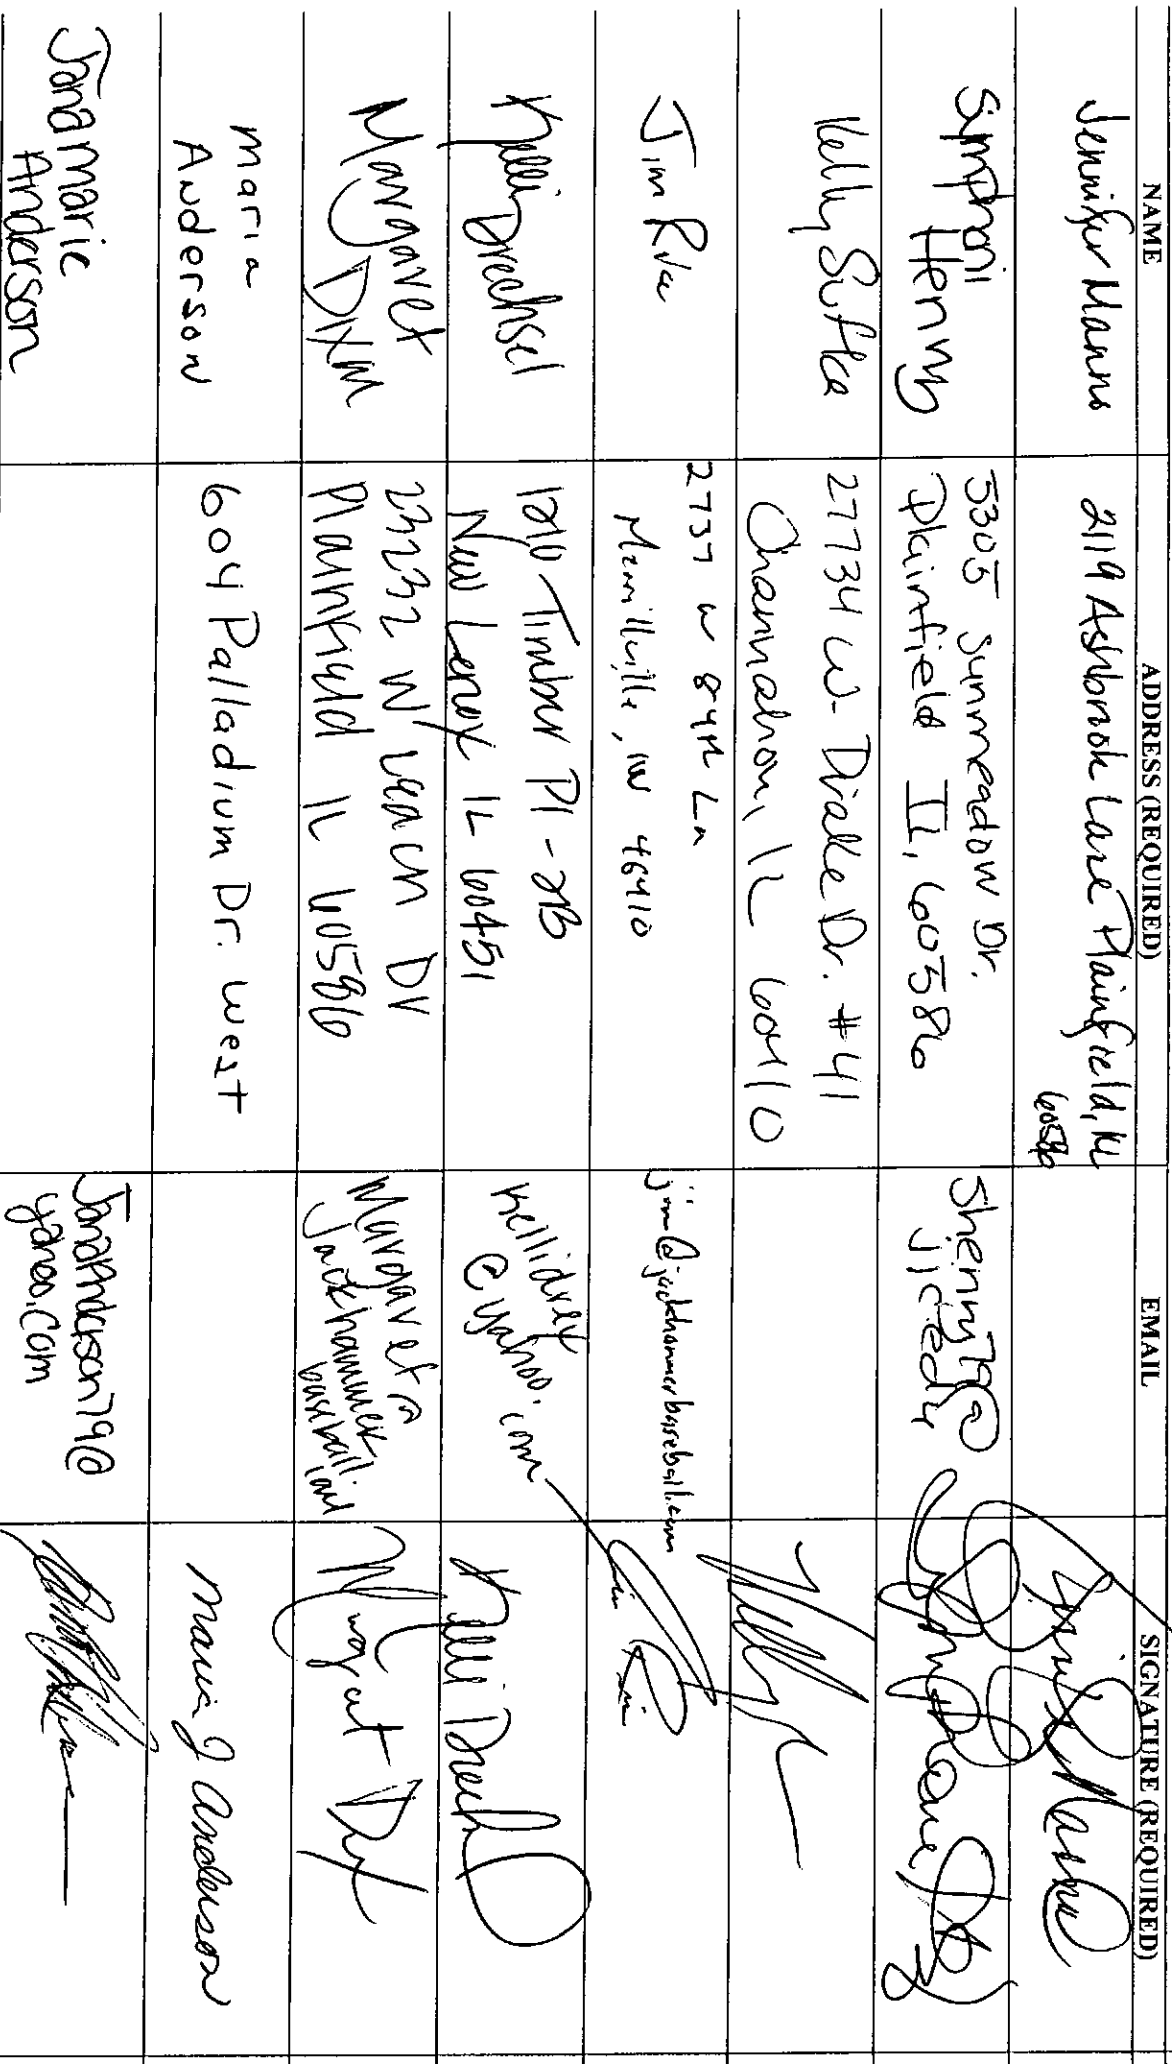 NAME ADDRESS (REQUIRED) EMAIL SIGNATURE (REQUIRED)
Jennifer Manns 2119 Ashbrook Lane Plainfield, IL
60586
Symphani
Henny
5305 Sunmeadow Dr.
Plainfield IL, 60586
Shenny79@
Kelly Sufka
27734 W. Drake Dr. #41
Channahon, IL 60410
Jim
2737 W 84th Ln
Merrillville, IN 46410
jim@jackhammerbaseball.com
Kelli Drechsel
1210 Timber Pl - 2B
New Lenox IL 60451
kellidrex
@yahoo.com
Kelli Drechsel
Margaret
Dixon
23232 W Leach Dr
Plainfield IL 60586
Margaret@
jackhammer
baseball.com
Margaret
maria
Anderson
604 Palladium Dr. West
Maria J Anderson
Janamarie
Anderson
JanaAnderson79@
yahoo.com